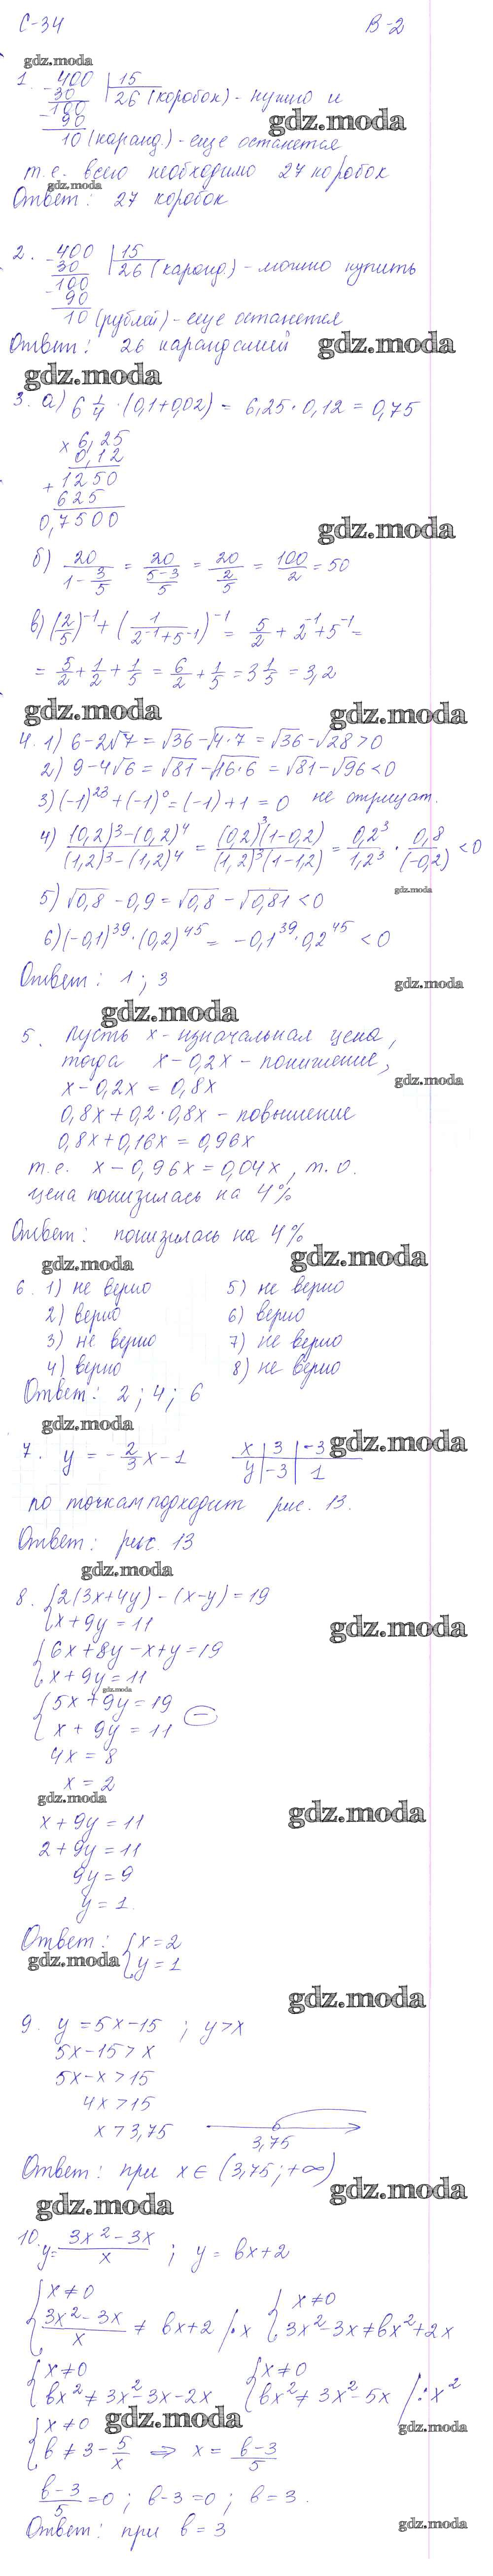 С-34 В-2
gdz.moda
1. - 400 | 15
30 26 (коробок) - нужно и
100
- 90 gdz.moda
10 (каранд.) - еще останется
т.е. всего необходимо 27 коробок
gdz.moda
Ответ: 27 коробок
2. - 400 | 15
30 26 (каранд.) - можно купить
100
- 90
10 (рублей) - еще останется
Ответ: 26 карандашей gdz.moda
gdz.moda
3. а) 6 1/4 · (0,1+0,02) = 6,25 · 0,12 = 0,75
× 6,25
0,12
+ 1250
625
0,7500 gdz.moda
б) 20/(1 - 3/5) = 20/((5-3)/5) = 20/(2/5) = 100/2 = 50
в) (2/5)^-1 + (1/(2^-1+5^-1))^-1 = 5/2 + 2^-1 + 5^-1 =
= 5/2 + 1/2 + 1/5 = 6/2 + 1/5 = 3 1/5 = 3,2
gdz.moda gdz.moda
4. 1) 6 - 2√7 = √36 - √4·7 = √36 - √28 > 0
2) 9 - 4√6 = √81 - √16·6 = √81 - √96 < 0
3) (-1)^23 + (-1)^0 = (-1) + 1 = 0 не отрицат.
4) ((0,2)^3 - (0,2)^4)/((1,2)^3 - (1,2)^4) = ((0,2)^3(1-0,2))/((1,2)^3(1-1,2)) = 0,2^3/1,2^3 · 0,8/(-0,2) < 0
gdz.moda
5) √0,8 - 0,9 = √0,8 - √0,81 < 0
6) (-0,1)^39 · (0,2)^45 = -0,1^39 · 0,2^45 < 0
Ответ: 1; 3 gdz.moda
gdz.moda
5. Пусть x - изначальная цена,
тогда x - 0,2x - понижение,
x - 0,2x = 0,8x gdz.moda
0,8x + 0,2 · 0,8x - повышение
0,8x + 0,16x = 0,96x
т.е. x - 0,96x = 0,04x, т.о.
цена понизилась на 4%
Ответ: понизилась на 4%
gdz.moda gdz.moda
6. 1) не верно 5) не верно
2) верно 6) верно
3) не верно 7) не верно
4) верно 8) не верно
Ответ: 2; 4; 6
gdz.moda
7. y = -2/3 x - 1 x | 3 | -3 gdz.moda
y | -3 | 1
по точкам подходит рис. 13.
Ответ: рис. 13
gdz.moda
8. { 2(3x+4y) - (x-y) = 19
x + 9y = 11 gdz.moda
{ 6x + 8y - x + y = 19
x + 9y = 11
gdz.moda
{ 5x + 9y = 19
x + 9y = 11 (-)
4x = 8
x = 2
gdz.moda
x + 9y = 11 gdz.moda
2 + 9y = 11
9y = 9
y = 1.
Ответ: { x = 2
gdz.moda y = 1
gdz.moda
9. y = 5x - 15 ; y > x
5x - 15 > x
5x - x > 15
4x > 15
x > 3,75
3,75
Ответ: при x ∈ (3,75; +∞)
gdz.moda
gdz.moda
10. y = (3x^2 - 3x)/x ; y = bx + 2
{ x ≠ 0 { x ≠ 0
(3x^2 - 3x)/x ≠ bx + 2 /·x 3x^2 - 3x ≠ bx^2 + 2x
{ x ≠ 0 { x ≠ 0
bx^2 ≠ 3x^2 - 3x - 2x bx^2 ≠ 3x^2 - 5x /: x^2
{ x ≠ 0 gdz.moda gdz.moda
b ≠ 3 - 5/x ⇒ x = (b-3)/5
(b-3)/5 = 0 ; b - 3 = 0 ; b = 3.
Ответ: при b = 3 gdz.moda